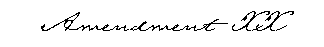 Amendment XX